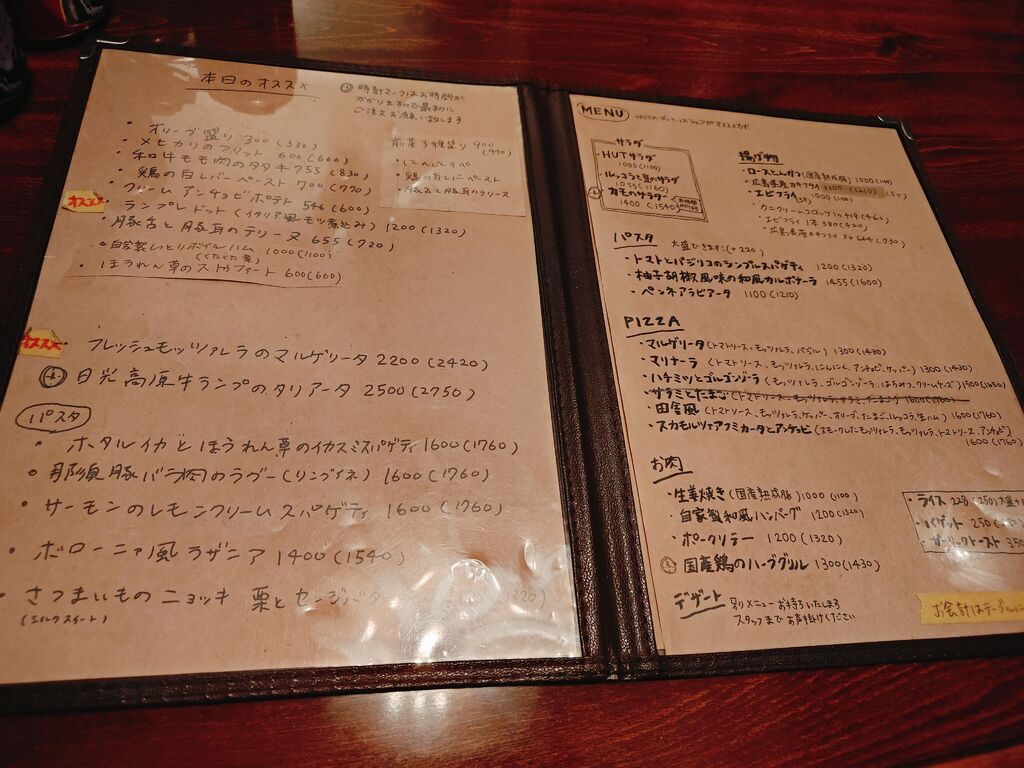 本日のオススメ
時計マークはお時間が
かかりますので最初に
ご注文お願い致します
・オリーブ盛り 300 (330)
・メヒカリのフリット 600 (660)
・和牛モモ肉のタタキ 755 (830)
・鶏の白レバーペースト 700 (770)
・クリームアンチョビポテト 546 (600)
オススメ
・ランプレドット (イタリア風モツ煮込み) 1200 (1320)
・豚舌と豚耳のテリーヌ 655 (720)
・自家製しっとりボイルハム 1000 (1100)
(くたくた煮)
・ほうれん草のストゥファート 600 (660)
前菜3種盛り 900
(990)
・にんじんラペ
・鶏の白レバーペースト
・豚舌と豚耳のテリーヌ
オススメ
フレッシュモッツァレラのマルゲリータ 2200 (2420)
日光高原牛ランプのタリアータ 2500 (2750)
パスタ
・ホタルイカとほうれん草のイカスミスパゲティ 1600 (1760)
・那須豚バラ肉のラグー (リングイネ) 1600 (1760)
・サーモンのレモンクリームスパゲティ 1600 (1760)
・ボローニャ風ラザニア 1400 (1540)
・さつまいものニョッキ 栗とセージバタ
(シルクスイート)
MENU
サラダ
・HUTサラダ
1000 (1100)
・ルッコラと豆のサラダ
1055 (1160)
・カモのサラダ
1400 (1540)
揚げ物
・ロースとんかつ (国産熟成豚) 1000 (1100)
・広島県産カキフライ
・エビフライ 1000 (1100)
・カニクリームコロッケ 1ヶ 419 (460)
・エビフライ 1本 380 (420)
・広島県産カキフライ 3ヶ 664 (730)
パスタ 大盛できます! (+220)
・トマトとバジリコのシンプルスパゲティ 1200 (1320)
・柚子胡椒風味の和風カルボナーラ 1455 (1600)
・ペンネアラビアータ 1100 (1210)
PIZZA
・マルゲリータ (トマトソース、モッツァレラ、バジル) 1300 (1430)
・マリナーラ (トマトソース、モッツァレラ、にんにん、アンチョビ、ケッパー) 1300 (1430)
・ハチミツとゴルゴンゾーラ (モッツァレラ、ゴルゴンゾーラ、はちみつ、クリームチーズ) 1500 (1650)
・サラミとたまご (トマトソース、モッツァレラ、サラミ、たまご) 1600 (1760)
・田舎風 (トマトソース、モッツァレラ、ケッパー、オリーブ、たまご、ルッコラ、生ハム) 1600 (1760)
・スカモルツァアフミカータとアンチョビ (スモークしたモッツァレラ、モッツァレラ、トマトソース、アンチョビ)
1600 (1760)
お肉
・生姜焼き (国産熟成豚) 1000 (1100)
・自家製和風ハンバーグ 1200 (1320)
・ポークソテー 1200 (1320)
国産鶏のハーブグリル 1300 (1430)
・ライス 228 (250) 大盛+
・バゲット 250
・ガーリックトースト 350
デザート 別メニューお持ちいたします
スタッフまでお声掛けください
お会計はテーブル